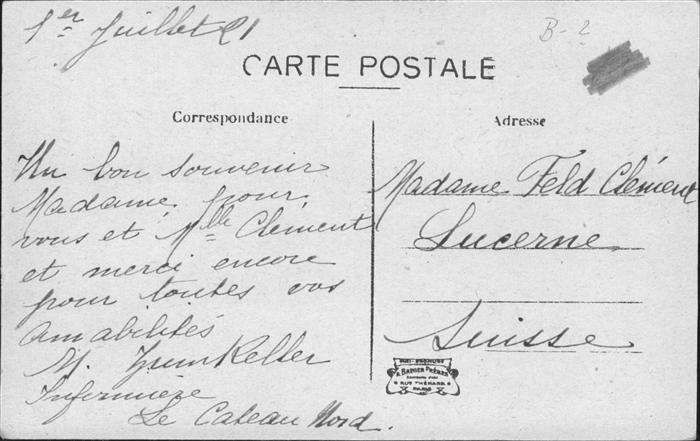 1er Juillet 21
B-2
CARTE POSTALE
Correspondance
Adresse
Un bon souvenir
Madame pour
vous et Mlle Clément
et merci encore
pour toutes vos
amabilités
M.
Infirmière
Le Cateau Nord.
Madame Feld Clément
Lucerne
Suisse
A. BREGER FRÈRES
9 RUE THÉNARD. 9
PARIS